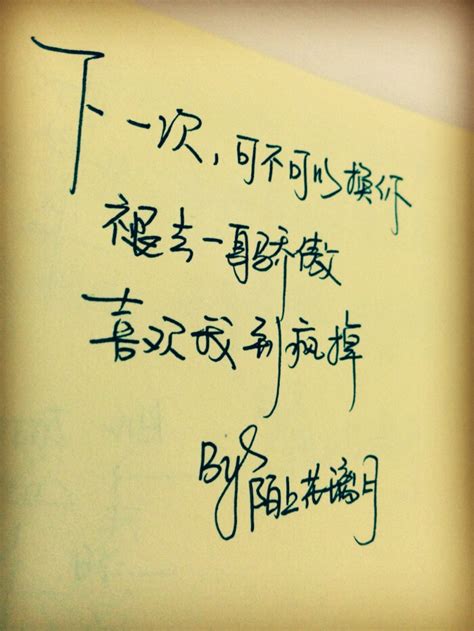 下一次，可不可以换你
褪去一身骄傲
喜欢我到疯掉
By 陌上花璃月